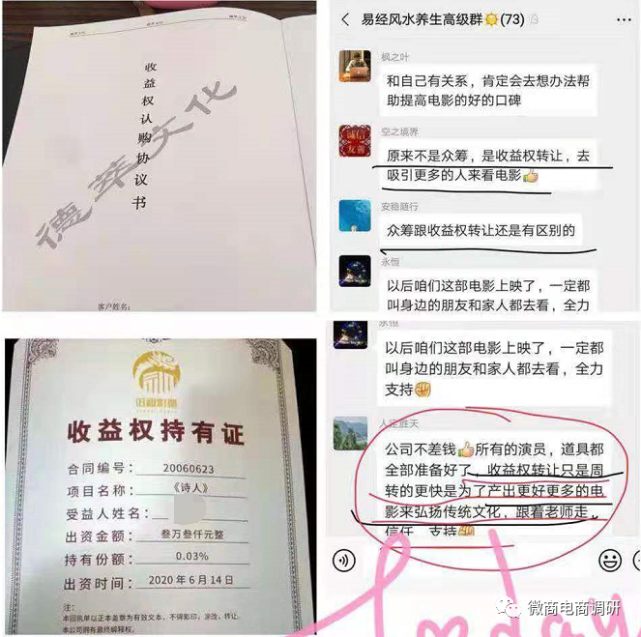 收益权认购协议书
德華文化
客户姓名:
易经风水养生高级群(73)
枫之叶
和自己有关系,肯定会去想办法帮
助提高电影的好的口碑
空之境界
诚信
友善
原来不是众筹,是收益权转让,去
吸引更多的人来看电影
安稳随行
众筹跟收益权转让还是有区别的
永恒
以后咱们这部电影上映了,一定都
叫身边的朋友和家人都去看,全力
收益权持有证
合同编号: 20060623
项目名称: 《诗人》
受益人姓名:
出资金额: 叁万叁仟元整
持有份额: 0.03%
出资时间: 2020年6月14日
注:
本回执单以正本盖章为有效文本,不得影印,涂改,转让.
本公司拥有最终解释权.
永恒
以后咱们这部电影上映了,一定都
叫身边的朋友和家人都去看,全力
支持
人定胜天
公司不差钱 所有的演员,道具都
全部准备好了,收益权转让只是周
转的更快是为了产出更好更多的电
影来弘扬传统文化,跟着老师走,
信任 支持
微商电商调研